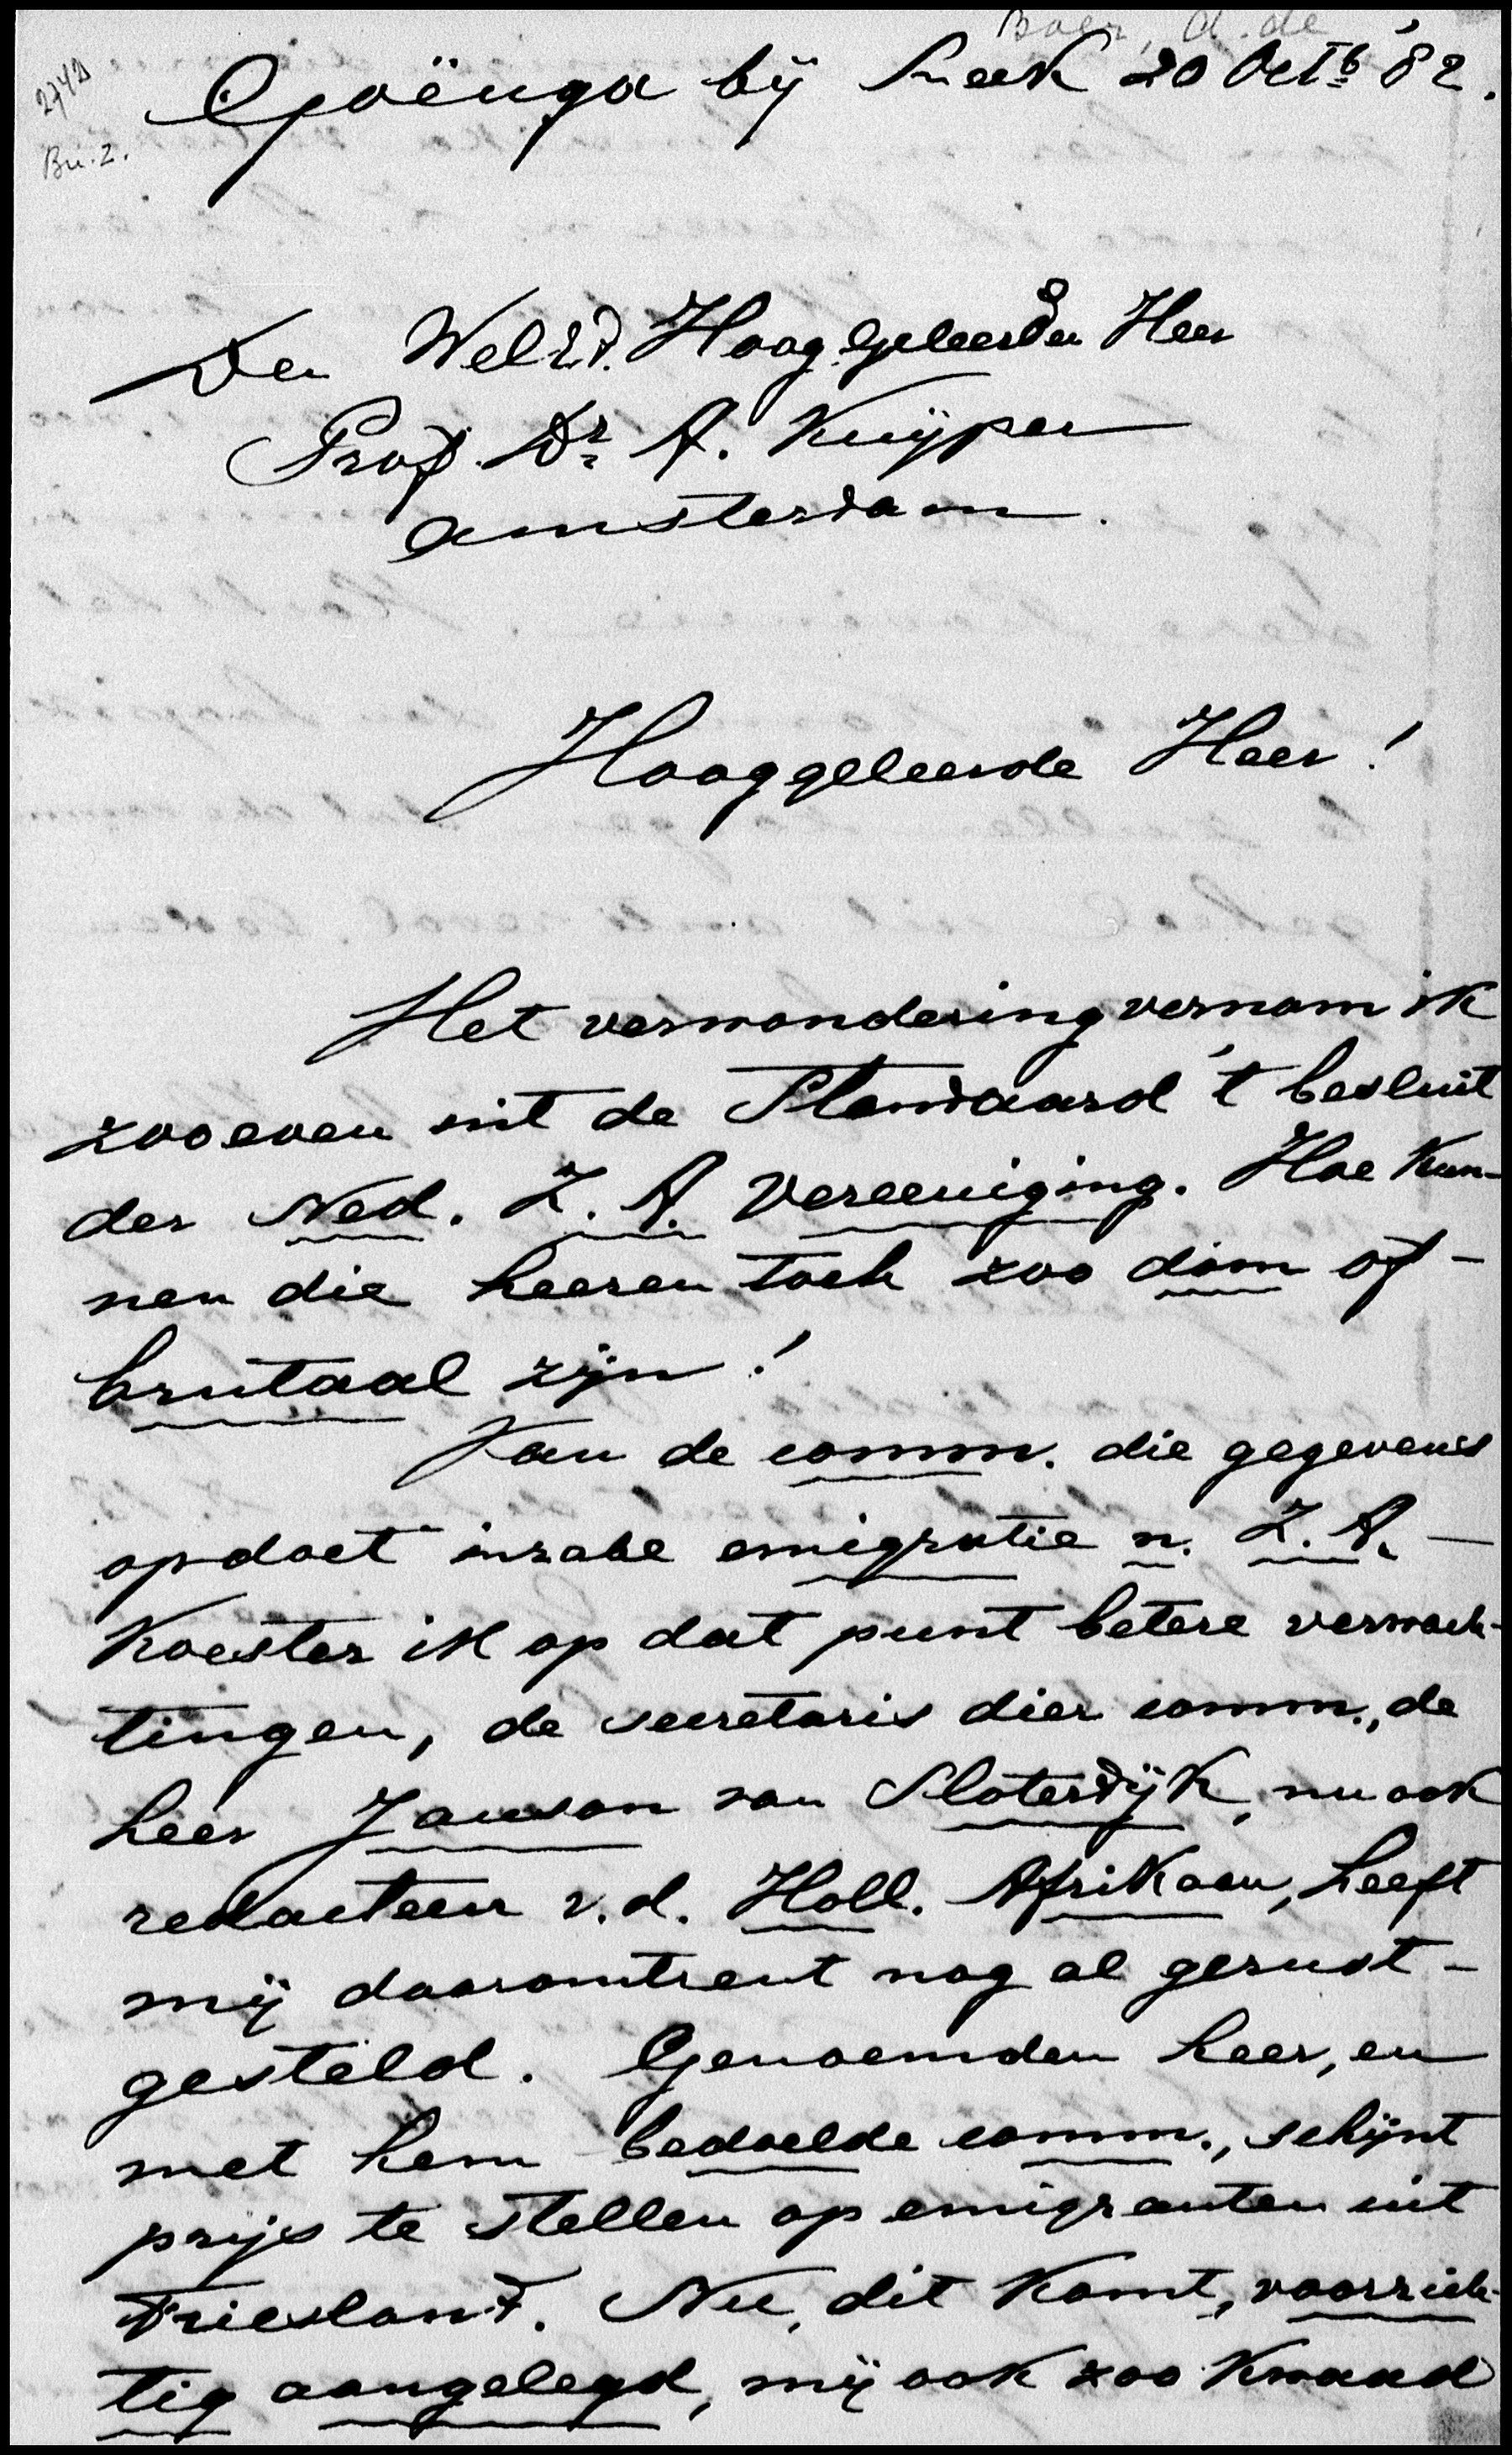 Boer, d. de
2742
Bu. z.
Goënga bij Sneek 20 Octb '82.
Den WelEd. Hoog Geleerden Heer
Prof. Dr. A. Kuijper
Amsterdam.
Hooggeleerde Heer!
Met verwondering vernam ik
zooeven uit de Standaard 't besluit
der Ned. Z. A. Vereeniging. Hoe kun-
nen die heeren toch zoo dom of -
brutaal zijn!
Van de comm. die gegevens
opdoet inzake emigratie n. Z. A. -
Koester ik op dat punt betere verwach-
tingen, de secretaris dier comm., de
heer Janson van Sloterdijk, nu ook
redacteur v. d. Holl. Afrikaan, heeft
mij daaromtrent nog al gerust-
gesteld. Genoemden heer, en
met hem bedoelde comm., schijnt
prijs te stellen op emigranten uit
Friesland. Nu, dit komt, voorzich-
tig aangelegd, mij ook zoo kwaad